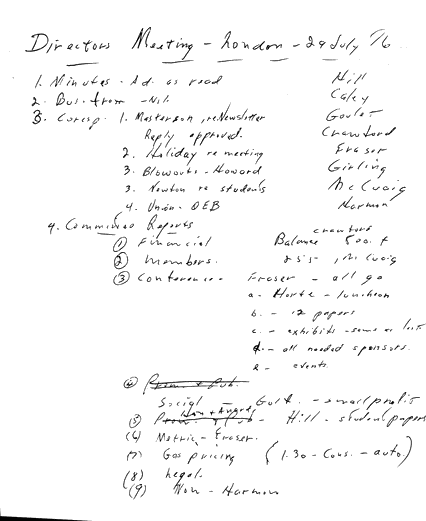 Directors Meeting - London - 29 July 76
1. Minutes - Ad. as read Hill
2. Bus. from - Nil Caley
3. Corresp. 1. Masterson, re Newsletter Goulet
Reply approved. Crawford
2. Holiday re meeting Fraser
3. Blowouts - Howard Girling
3. Newton re students McCuaig
4. Union - OEB Harmon
4. Committee Reports
① Financial Crawford Balance 500.
② Members. 251 - , McCuaig
③ Conference - Fraser - all go
a - Horte - luncheon
b. - 12 papers
c. - exhibits - same as last
d. - all needed sponsors.
e - events.
④ Prom. + Pub.
Social - small profit
(5) + Award - Hill - student papers
(6) Metric - Fraser.
(7) Gas pricing (1.30 - Cons. - auto.)
(8) Legal.
(9) Nom - Harmon